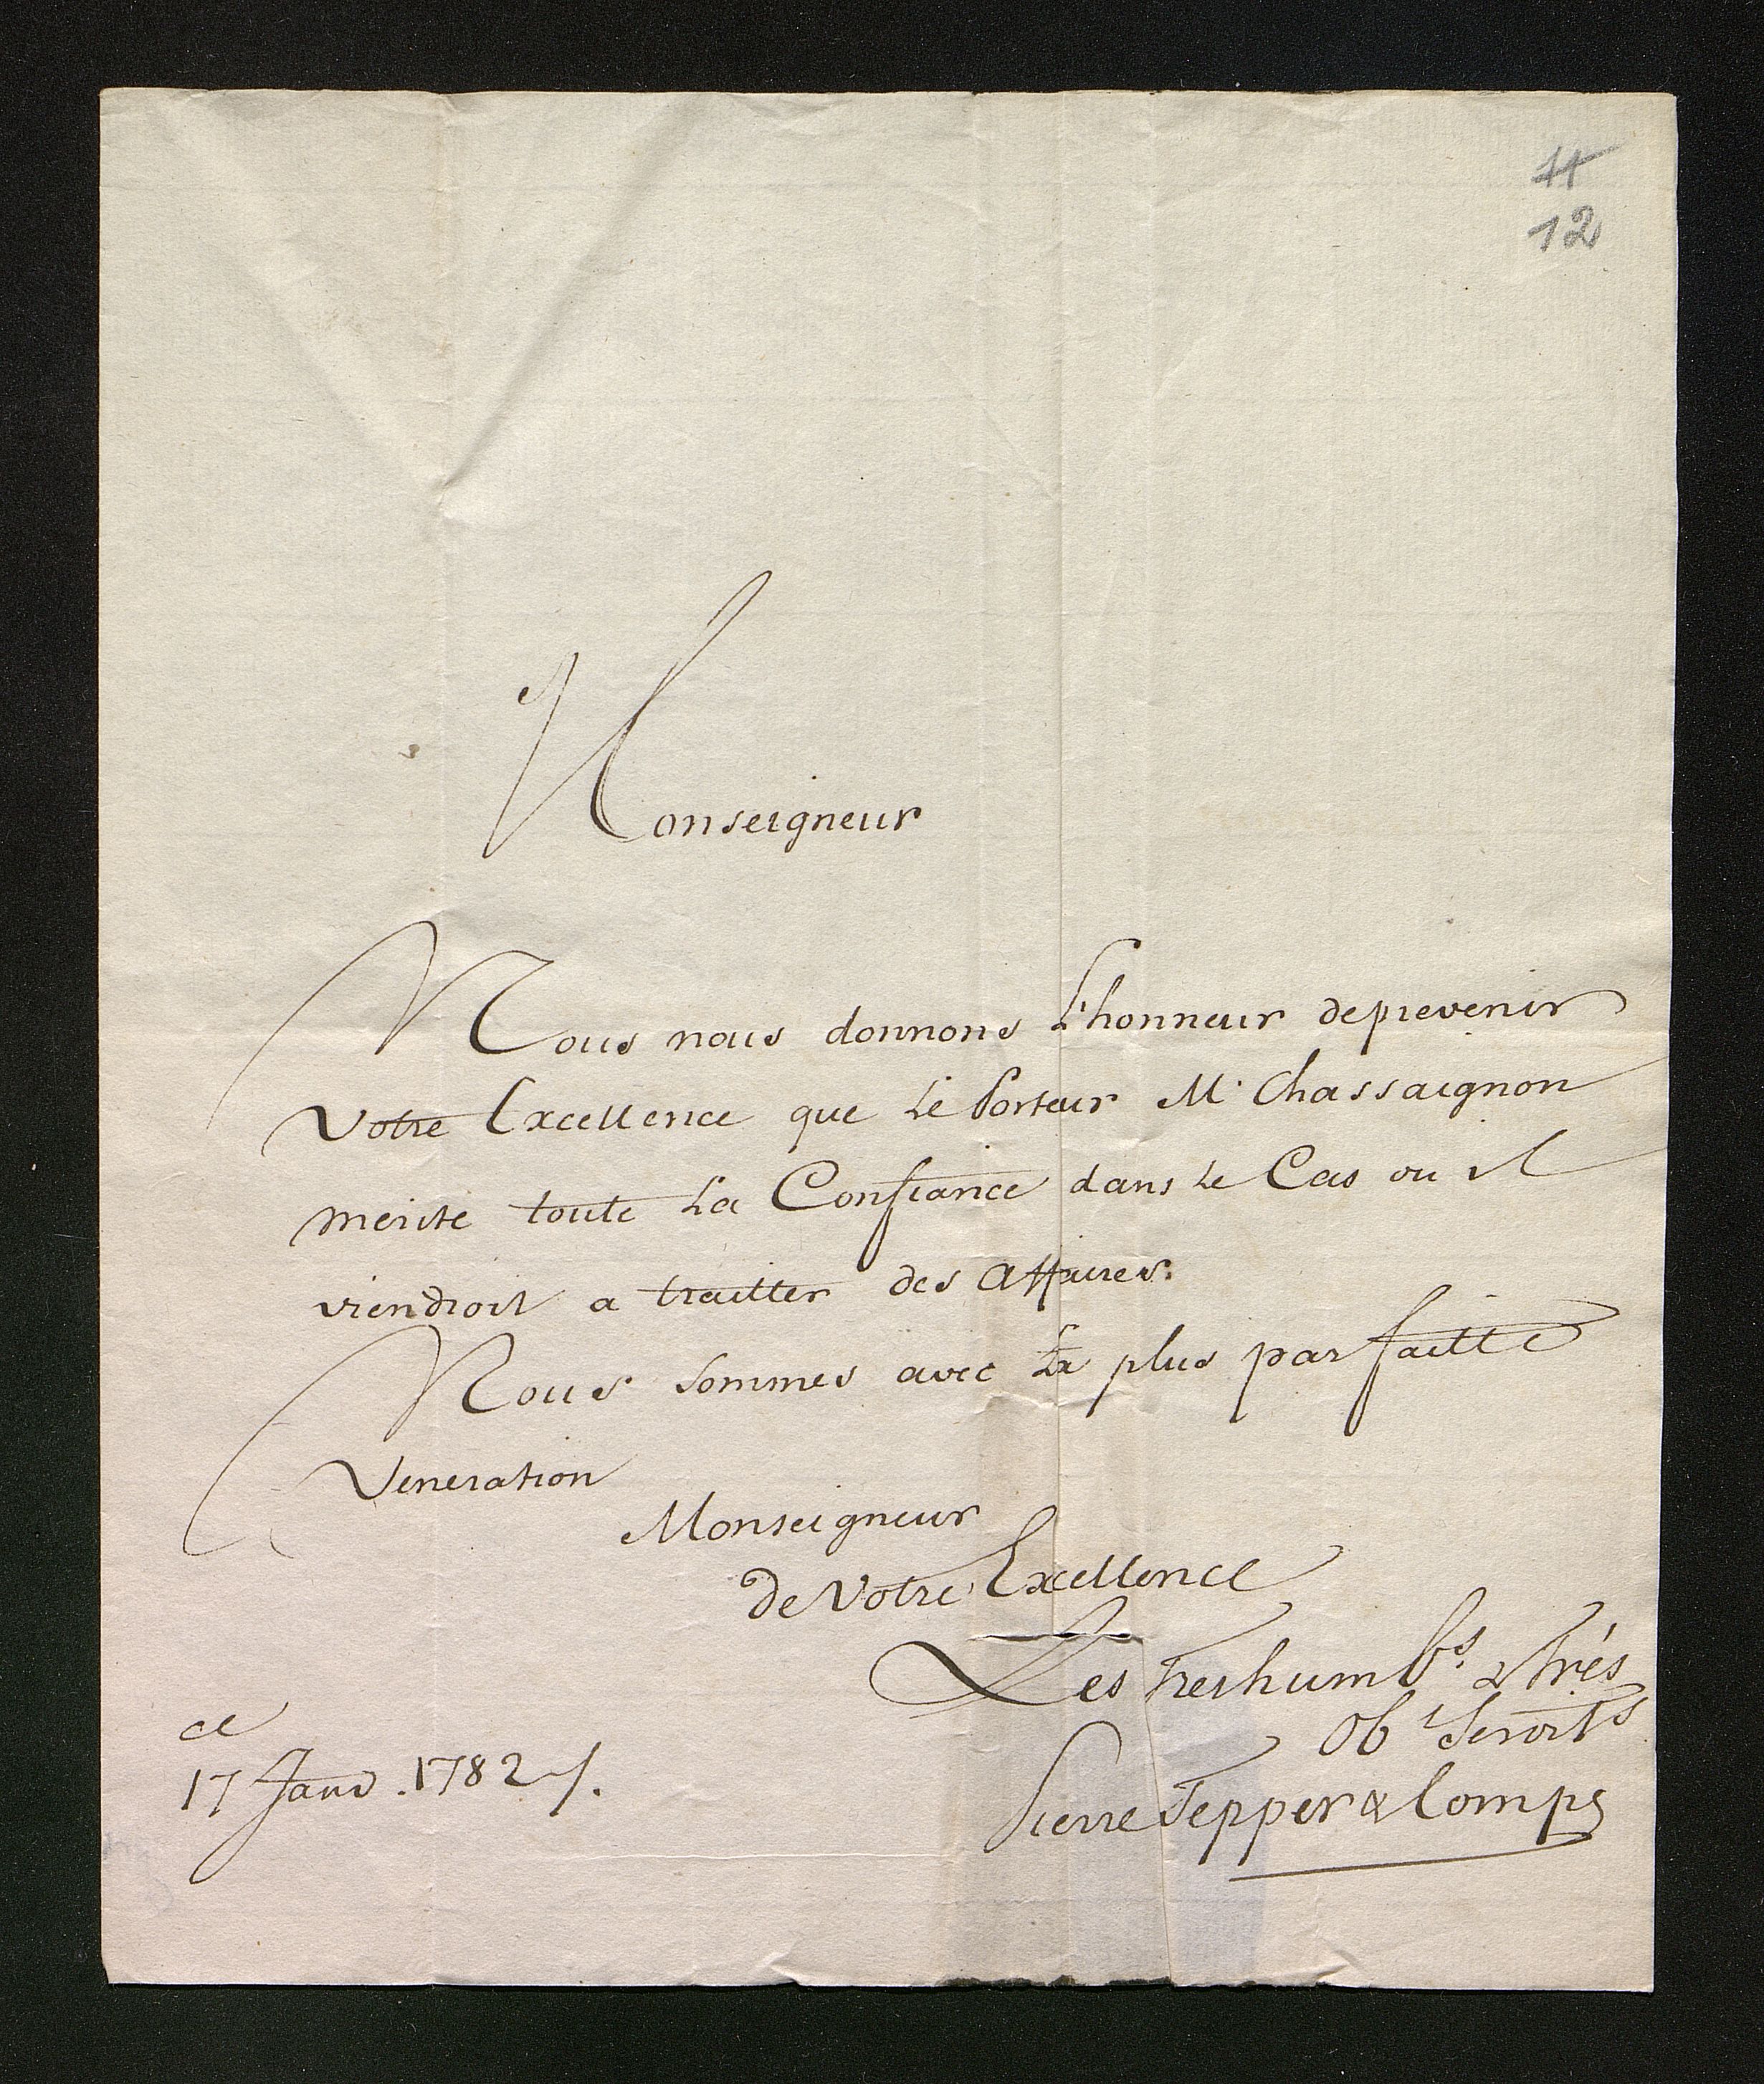 11
12
Monseigneur
Nous nous donnons L'honneur deprevenir
Votre Excellence que Le Porteur Mr Chassaignon
merite toute La Confiance dans Le Cas ou il
viendroit a traitter des Affaires.
Nous sommes avec La plus parfaitte
Veneration
Monseigneur
de Votre Excellence
Les Treshumbs. & Trés
Obt Servits
Pierre Tepper & Comps
ce
17 Janv. 1782 /.